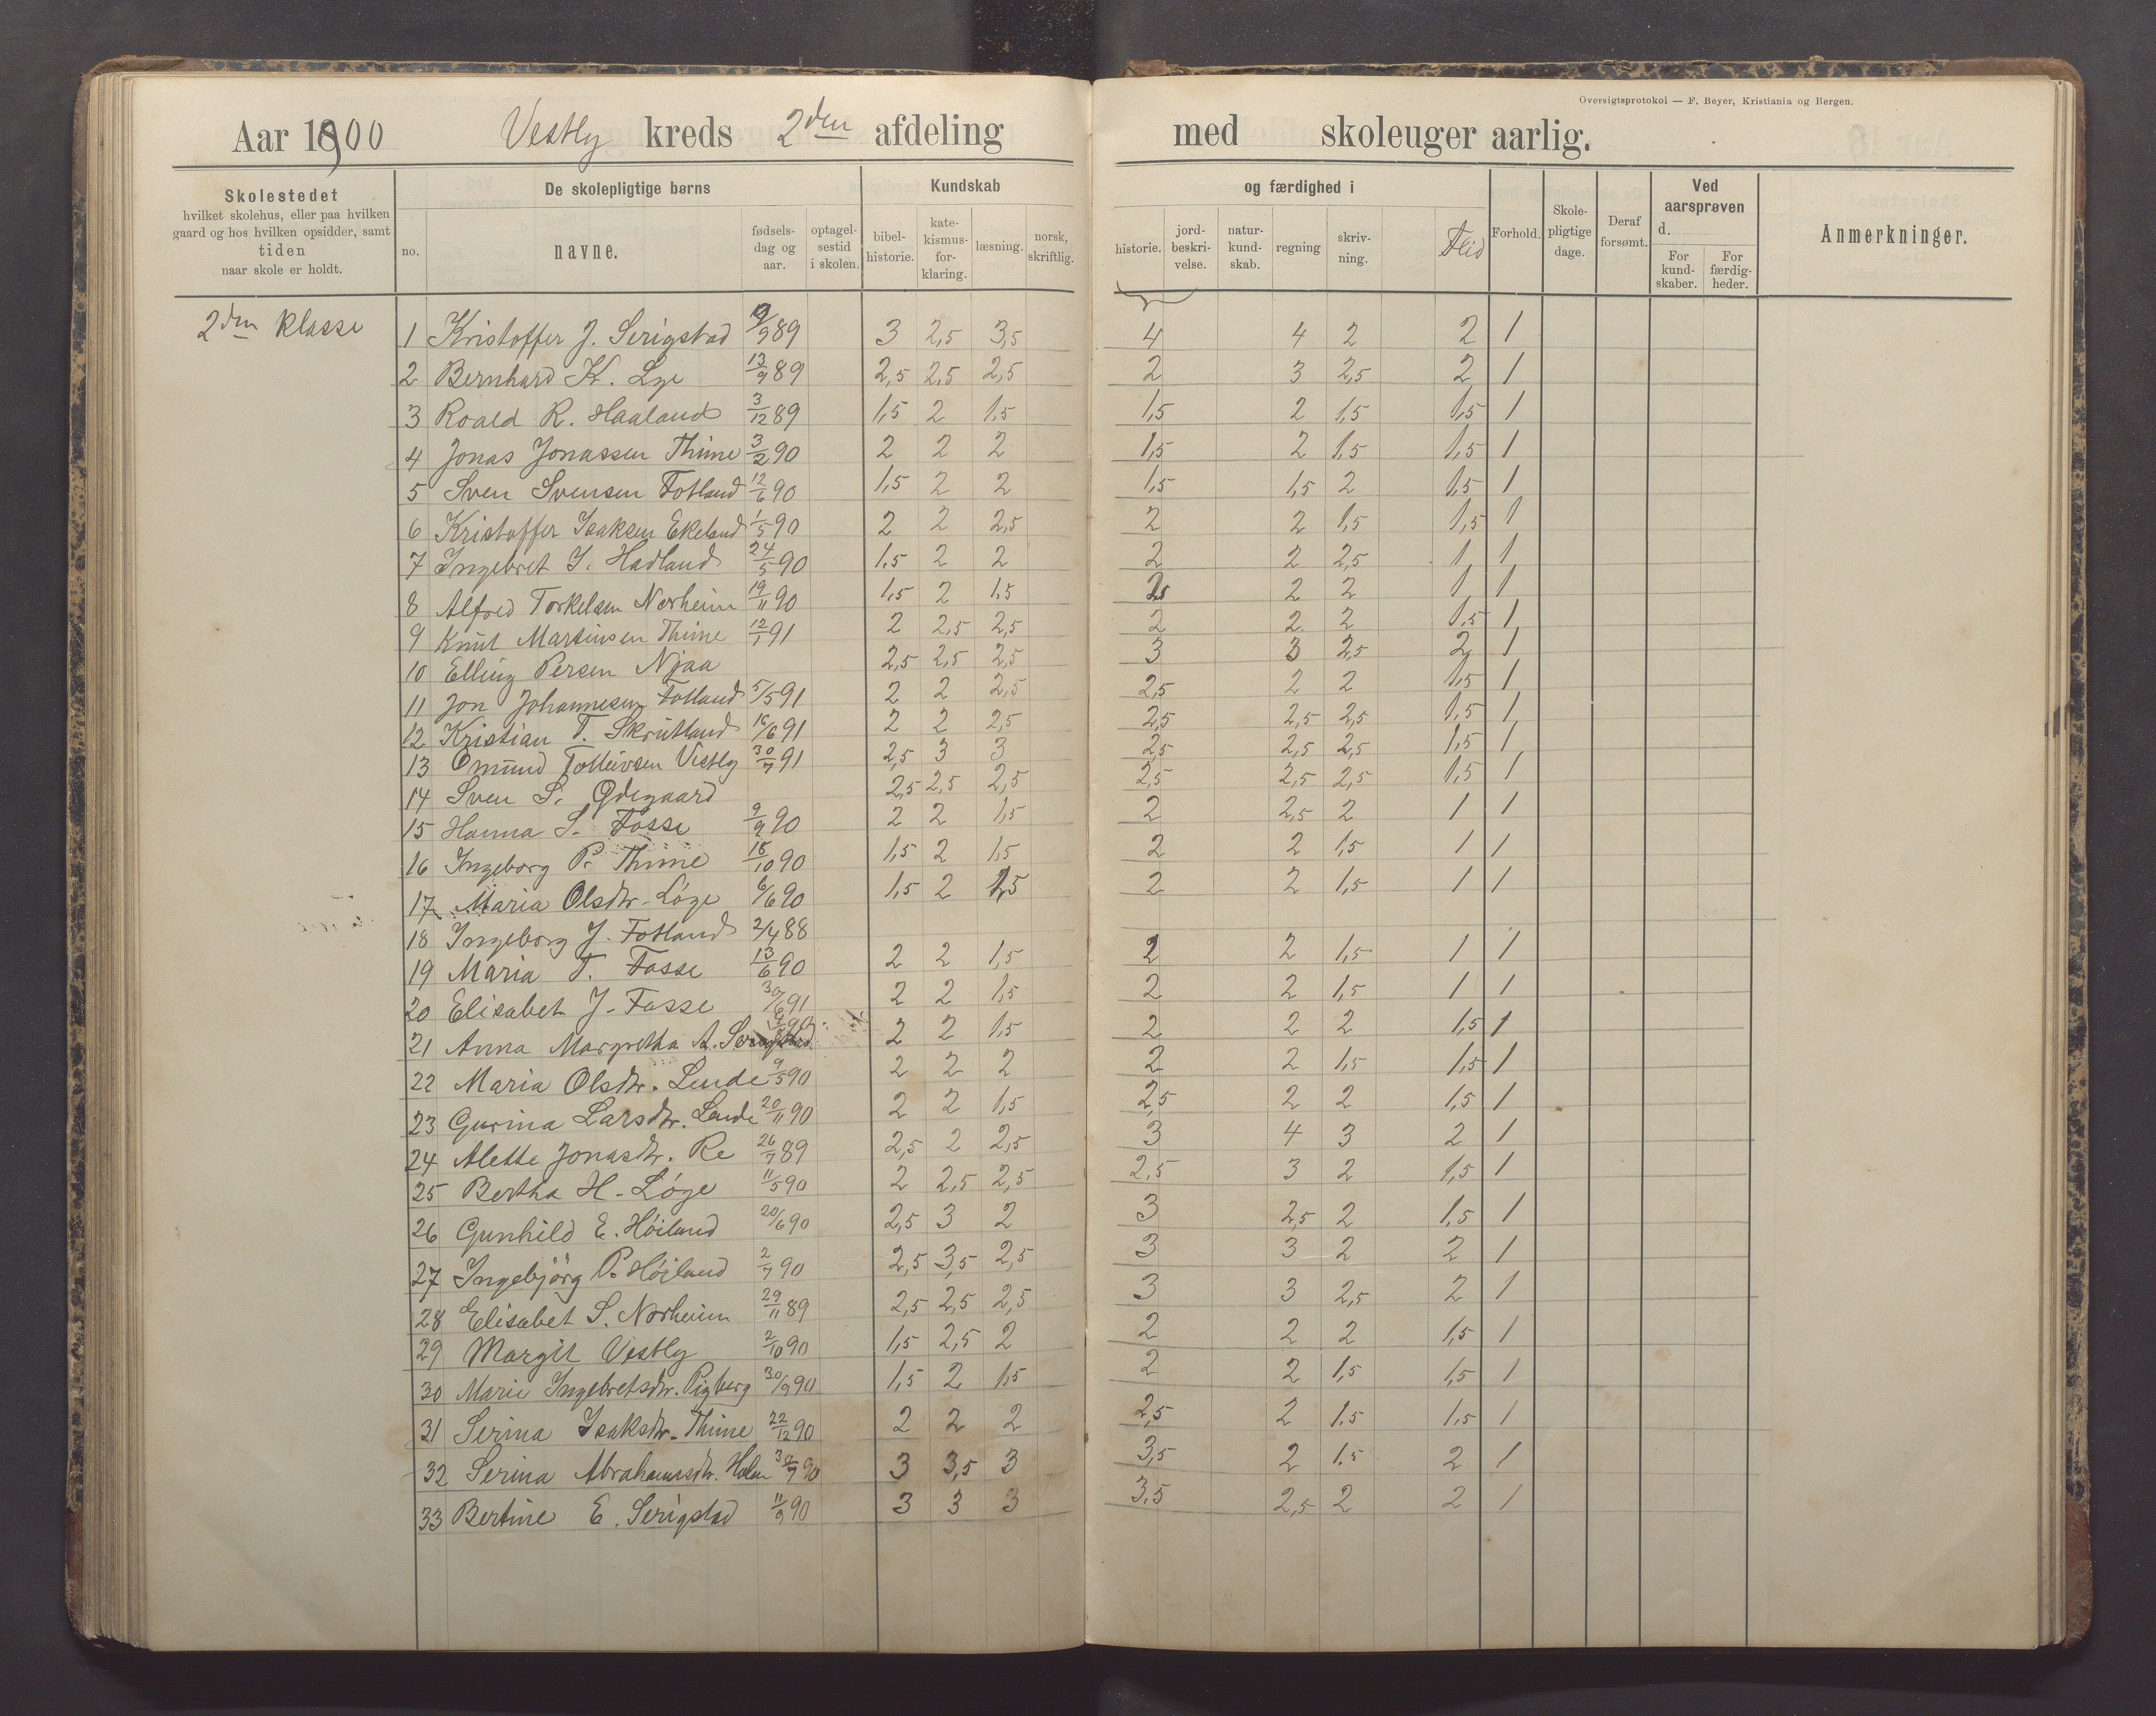 Oversigtsprotokol — F. Beyer, Kristiania og Bergen.
Aar 1900 Vestly kreds 2den afdeling med skoleuger aarlig.
Skolestedet hvilket skolehus, eller paa hvilken gaard og hos hvilken opsidder, samt tiden naar skole er holdt.
De skolepligtige børns Kundskab og færdighed i
no. navne. fødsels-dag og aar. optagel-sestid i skolen. bibel-historie. kate-kismus-for-klaring. læsning. norsk, skriftlig. historie. jord-beskri-velse. natur-kund-skab. regning skriv-ning. Flid Forhold. Skole-pligtige dage. Deraf forsømt. Ved aarsprøven d. For kund-skaber. For færdig-heder. Anmerkninger.
2den klasse
1 Kristoffer J. Serigstad 9/9 89 3 2,5 3,5 4 4 2 2 1
2 Bernhard K. Lye 13/9 89 2,5 2,5 2,5 2 3 2,5 2 1
3 Roald R. Haaland 3/12 89 1,5 2 1,5 1,5 2 1,5 1,5 1
4 Jonas Jonassen Thime 3/2 90 2 2 2 1,5 2 1,5 1,5 1
5 Sven Svensen Fotland 12/6 90 1,5 2 2 1,5 1,5 2 1,5 1
6 Kristoffer Isaksen Ekeland 1/5 90 2 2 2,5 2 2 1,5 1,5 1
7 Ingebret J. Hadland 24/5 90 1,5 2 2 2 2 2,5 1 1
8 Alfred Torkelsen Norheim 19/11 90 1,5 2 1,5 2 2 2 1 1
9 Knut Martinsen Thime 12/1 91 2 2,5 2,5 2 2 2 1,5 1
10 Elling Persen Njaa 2,5 2,5 2,5 3 3 2,5 2 1
11 Jon Johannesen Fotland 5/5 91 2 2 2,5 2,5 2 2 1,5 1
12 Kristian T. Skrutland 16/6 91 2 2 2,5 2,5 2,5 2,5 1,5 1
13 Omund Tolleivsen Vestly 30/7 91 2,5 3 3 2,5 2,5 2,5 1,5 1
14 Sven S. Ødegaard 2,5 2,5 2,5 2,5 2,5 2,5 1,5 1
15 Hanna S. Fosse 9/9 90 2 2 1,5 2 2,5 2 1 1
16 Ingeborg P. Thime 18/10 90 1,5 2 1,5 2 2 1,5 1 1
17 Maria Olsdtr. Löge 6/6 90 1,5 2 1,5 2 2 1,5 1 1
18 Ingeborg J. Fotland 2/4 88
19 Maria T. Fosse 13/6 90 2 2 1,5 2 2 1,5 1 1
20 Elisabet J. Fosse 30/6 91 2 2 1,5 2 2 1,5 1 1
21 Anna Margretha A. Serigstad 90 2 2 1,5 2 2 2 1,5 1
22 Maria Olsdtr. Lende 9/5 90 2 2 2 2 2 1,5 1,5 1
23 Gurina Larsdtr. Lende 20/11 90 2 2 1,5 2,5 2 2 1,5 1
24 Alette Jonasdtr. Re 26/7 89 2,5 2 2,5 3 4 3 2 1
25 Bertha H. Löge 11/5 90 2 2,5 2,5 2,5 3 2 1,5 1
26 Gunhild E. Höiland 20/6 90 2,5 3 2 3 2,5 2 1,5 1
27 Ingebjörg P. Höiland 2/7 90 2,5 3,5 2,5 3 3 2 2 1
28 Elisabet S. Norheim 29/11 89 2,5 2,5 2,5 3 3 2,5 2 1
29 Margit Vestly 2/10 90 1,5 2,5 2 2 2 2 1,5 1
30 Marie Ingebretsdtr. Rigberg 30/9 90 1,5 2 1,5 2 2 1,5 1,5 1
31 Serina Isaksdtr. Thime 22/12 90 2 2 2 2,5 2 1.5 1,5 1
32 Serina Abrahamsdtr. 90 3 3,5 3 3,5 2 1.5 2 1
33 Bertine E. Serigstad 11/9 90 3 3 3 3.5 2,5 2 2 1